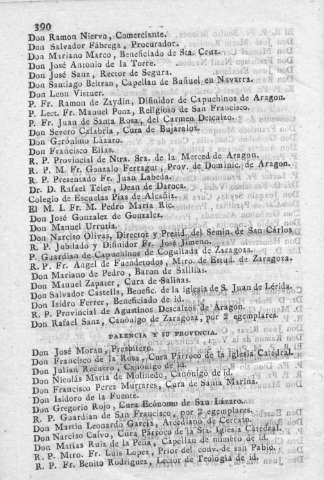 390
Don Ramon Nierva, Comerciante.
Don Salvador Fábrega, Procurador.
Don Mariano Marco, Beneficiado de Sta. Cruz.
Don José Antonio de la Torre.
Don José Sanz, Rector de Segura.
Don Santiago Beltran, Capellan de Buñuel en Navarra.
Don Leon Vistuer.
P. Fr. Ramon de Zaydin, Difinidor de Capuchinos de Aragon.
P. Lect. Fr. Manuel Ponz, Religioso de San Francisco.
P. Fr. Juan de Santa Rosa, del Carmen Descalzo.
Don Severo Calabria, Cura de Bujaraloz.
Don Gerónimo Lázaro.
Don Francisco Elias.
R. P. Provincial de Ntra. Sra. de la Merced de Aragon.
R. P. M. Fr. Gonzalo Ferragut, Prov. de Dominic. de Aragon.
R. P. Presentado Fr. Juan Labeda.
Dr. D. Rafael Telez, Dean de Daroca.
Colegio de Escuelas Pias de Alcañiz.
El M. I. Fr. M. Pedro Maria Ric.
Don José Gonzalez de Gonzalez.
Don Manuel Urrutia.
Don Narciso Olivas, Director y Presid. del Semin. de San Cárlos
R. P. Jubilado y Difinidor Fr. José Jimeno.
P. Guardian de Capuchinos de Cogullada de Zaragoza.
R. P. Fr. Angel de Fuendetodos, Mtro. de Estud. de Zaragoza.
Don Mariano de Pedro, Baron de Salillas.
Don Manuel Zapater, Cura de Salinas.
Don Salvador Castells, Benefic. de la iglesia de S. Juan de Lérida.
Don Isidro Ferrer, Beneficiado de id.
R. P. Provincial de Agustinos Descalzos de Aragon.
Don Rafael Sanz, Canónigo de Zaragoza, por 2 egemplares.
PALENCIA Y SU PROVINCIA.
Don José Moran, Presbítero.
Don Francisco de la Rosa, Cura Párroco de la iglesia Catedral.
Don Julian Recuero, Canónigo de id.
Don Nicolás Maria de Molinedo, Canónigo de id.
Don Francisco Perez Murrares, Cura de Santa Marina.
Don Isidoro de la Fuente.
Don Gregorio Rojo, Cura Ecónomo de San Lázaro.
R. P. Guardian de San Francisco, por 2 egemplares.
Don Martin Leonardo Garcia, Arcediano de Cerrato.
Don Narciso Calvo, Cura Párroco de la Sta. Iglesia Catedral.
Don Matias Ruiz de la Peña, Capellan de número de id.
R. P. Mtro. Fr. Luis Lopez, Prior del conv. de san Pablo.
R. P. Fr. Benito Rodriguez, Lector de Teología de id.